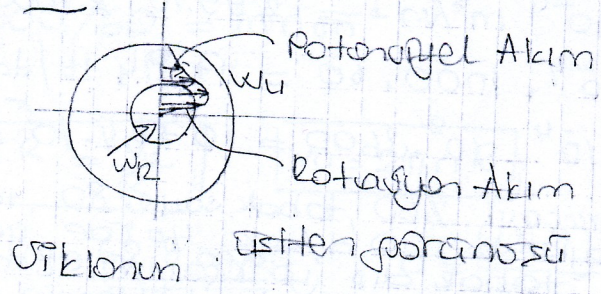 Potansiyel Akım
Wu
WR
Rotasyon Akım
Siklonun üstten görünüşü